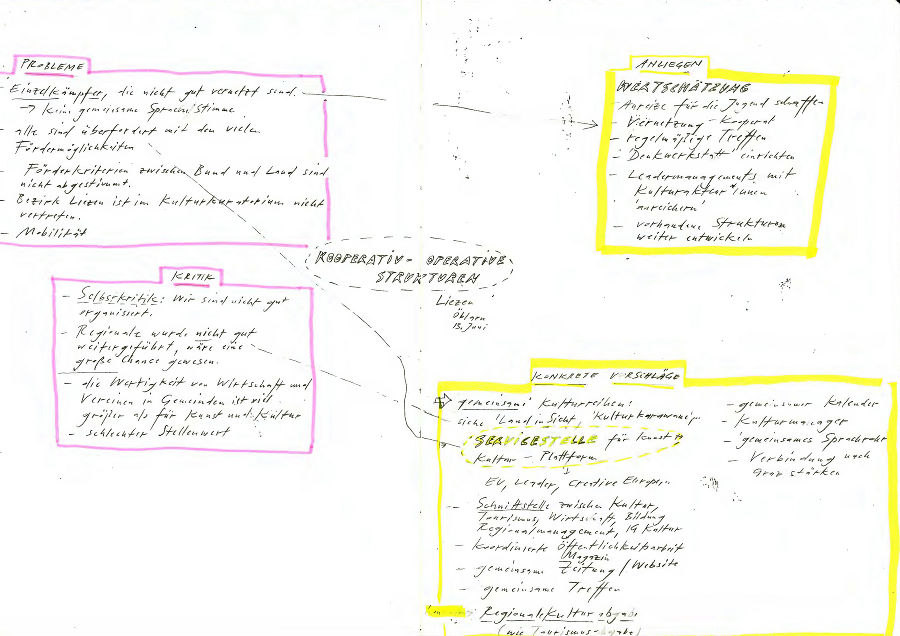 PROBLEME
- Einzelkämpfer, die nicht gut vernetzt sind.
→ keine gemeinsame Sprache/Stimme
- alle sind überfordert mit den vielen
Fördermöglichkeiten
- Förderkriterien zwischen Bund und Land sind
nicht abgestimmt.
- Bezirk Liezen ist im Kulturkuratorium nicht
vertreten.
- Mobilität
KRITIK
- Selbstkritik: Wir sind nicht gut
organisiert.
- Regionale wurde nicht gut
weitergeführt, wäre eine
große Chance gewesen.
- die Wertigkeit von Wirtschaft und
Vereinen in Gemeinden ist viel
größer als für Kunst und Kultur
- schlechter Stellenwert
KOOPERATIV - OPERATIVE
STRUKTUREN
Liezen
Öblarn
13. Juni
ANLIEGEN
WERTSCHÄTZUNG
- Anreize für die Jugend schaffen
- Vernetzung - Kooperat
- regelmäßige Treffen
- 'Denkwerkstatt' einrichten
- Leadermanagements mit
Kulturakteur*Innen
'anreichern'
- vorhandene Strukturen
weiter entwickeln
KONKRETE VORSCHLÄGE
gemeinsame Kulturreihen:
siehe 'Land in Sicht', 'Kulturkarawane',
SERVICESTELLE für Kunst &
Kultur - Plattform
↓
EU, Leader, Creative Europe
- Schnittstelle zwischen Kultur,
Tourismus, Wirtschaft, Bildung
Regionalmanagement, IG Kultur
- koordinierte Öffentlichkeitsarbeit
Magazin
- gemeinsame Zeitung / Website
- gemeinsame Treffen
- Regionale Kulturabgabe
(wie Tourismus-abgabe)
- gemeinsamer Kalender
- Kulturmanager
- gemeinsames Sprachrohr
- Verbindung nach
Graz stärken